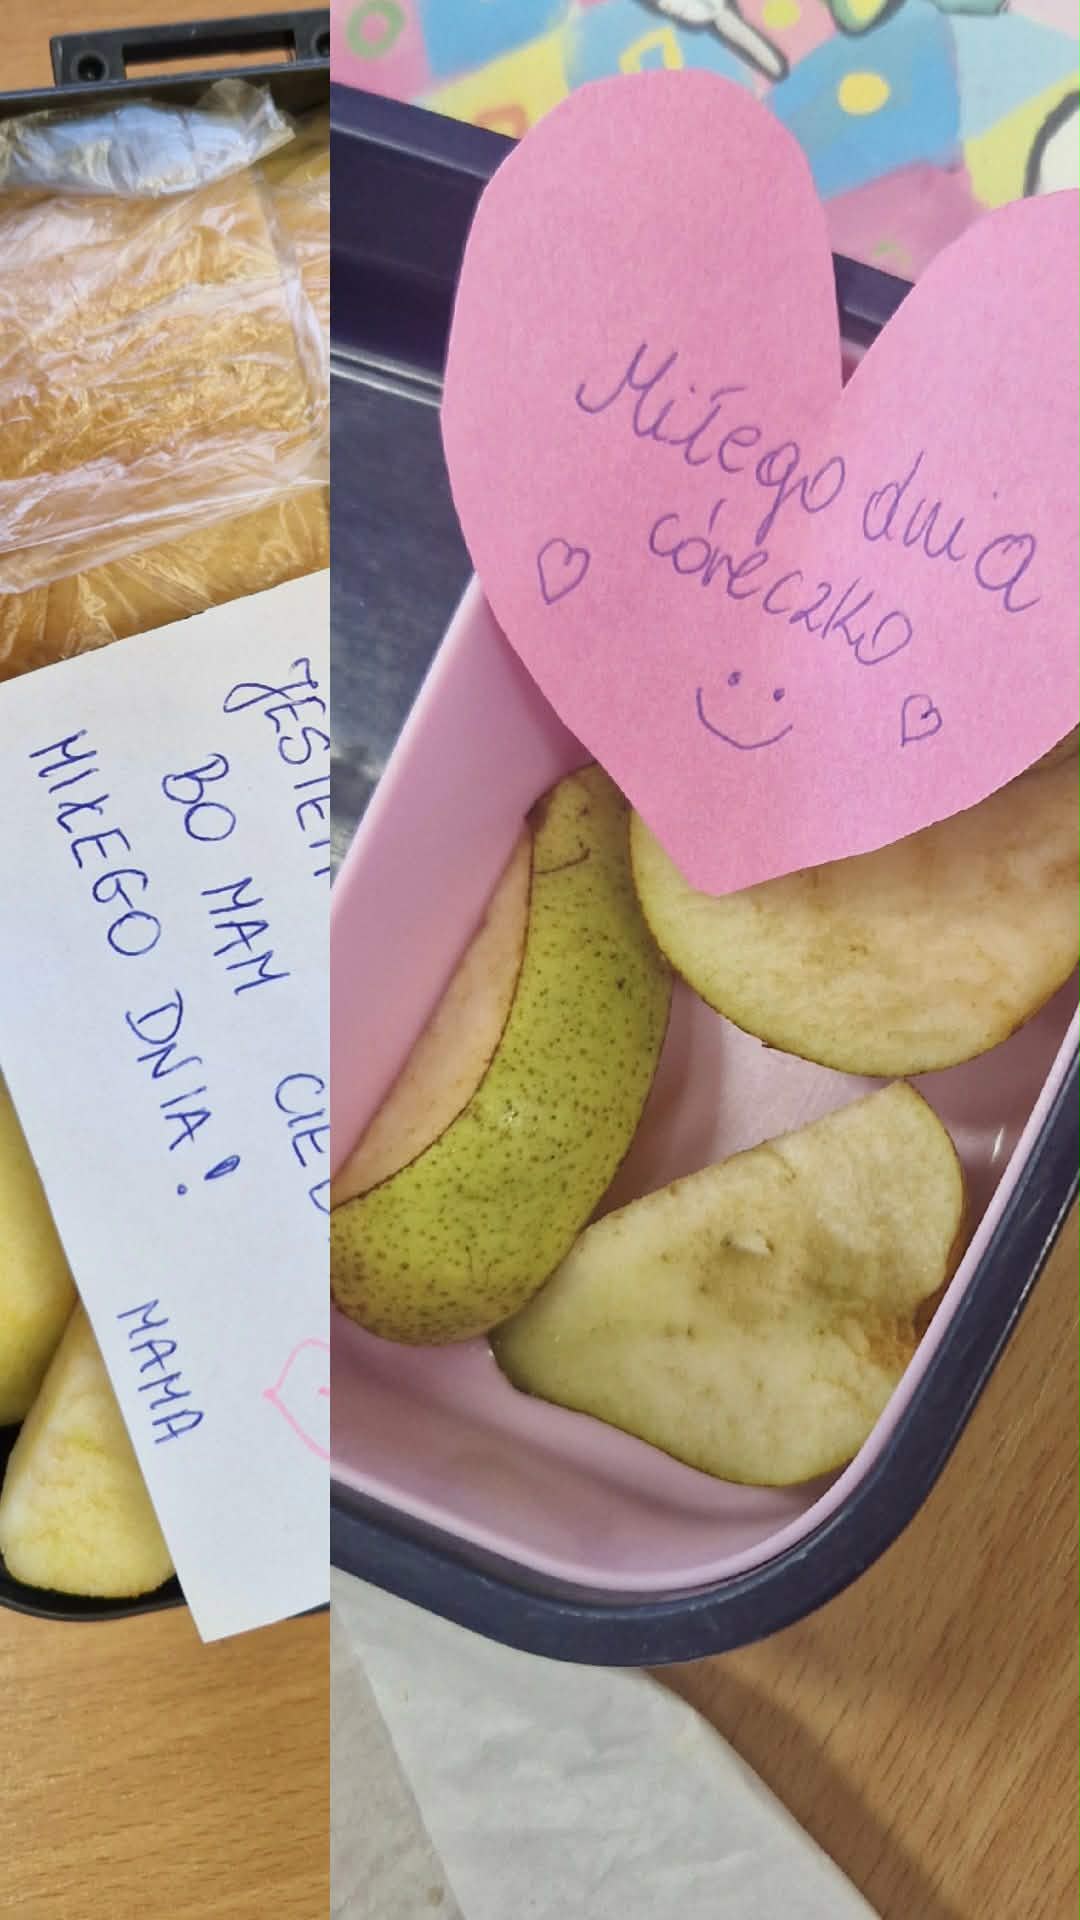 BO MAM
MIŁEGO DNIA!
MAMA
Miłego dnia
córeczko